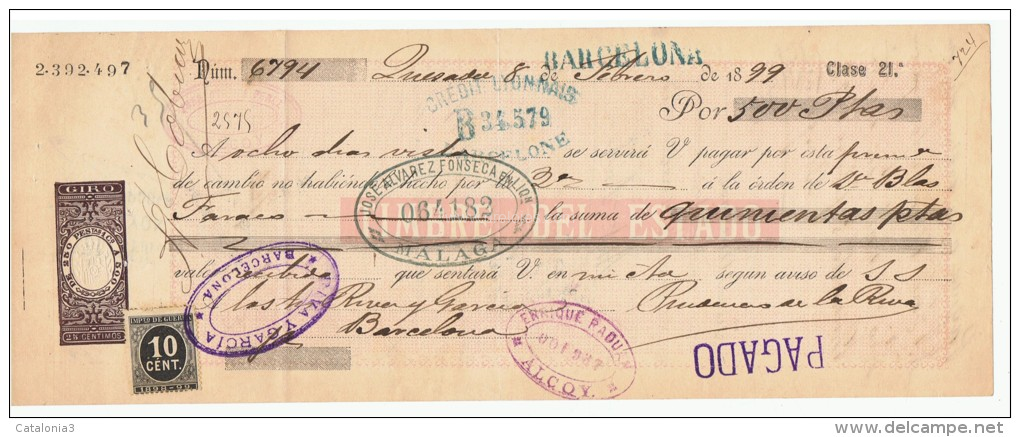 BARCELONA
2-392-497
Núm. 6794 Quesada 8 de Febrero de 1899 Clase 21.ª
724
CRÉDIT LYONNAIS
B 34579
BARCELONE
2575
Por 500 Ptas
A ocho dias vista se servirá V pagar por esta primera
de cambio no habiéndolo hecho por la 2ª á la órden de Dn Blas
JOSÉ ALVAREZ FONSECA EN LIQN
064182
MALAGA
la suma de quinientas ptas
TIMBRE DEL ESTADO
valor recibido que sentará V. en mi Cta segun aviso de S S
Riva y Garcia
Barcelona
Prudencio de la Riva
GIRO
DE 250 PESETAS A 500
25 CENTIMOS
IMPTO DE GUERRA
10
CENT.
1898-99
RIVA Y GARCIA
BARCELONA
ENRIQUE RADUAN
ALCOY.
PAGADO
Catalonia3
www.delcampe.net